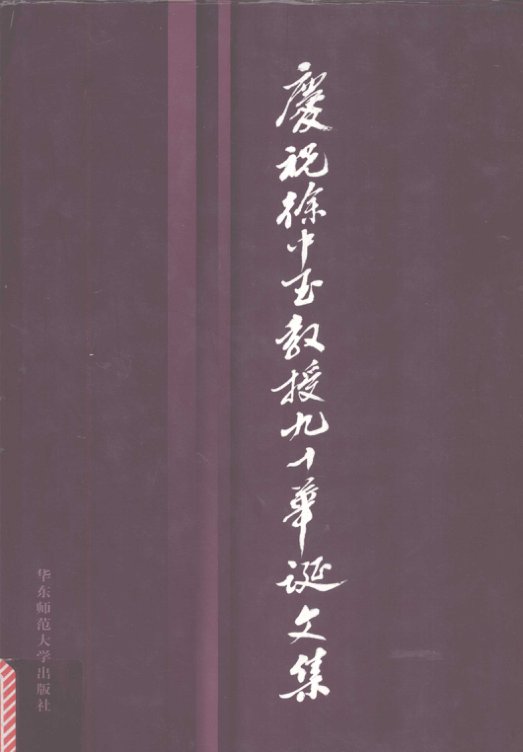 慶祝徐中玉教授九十華誕文集
华东师范大学出版社